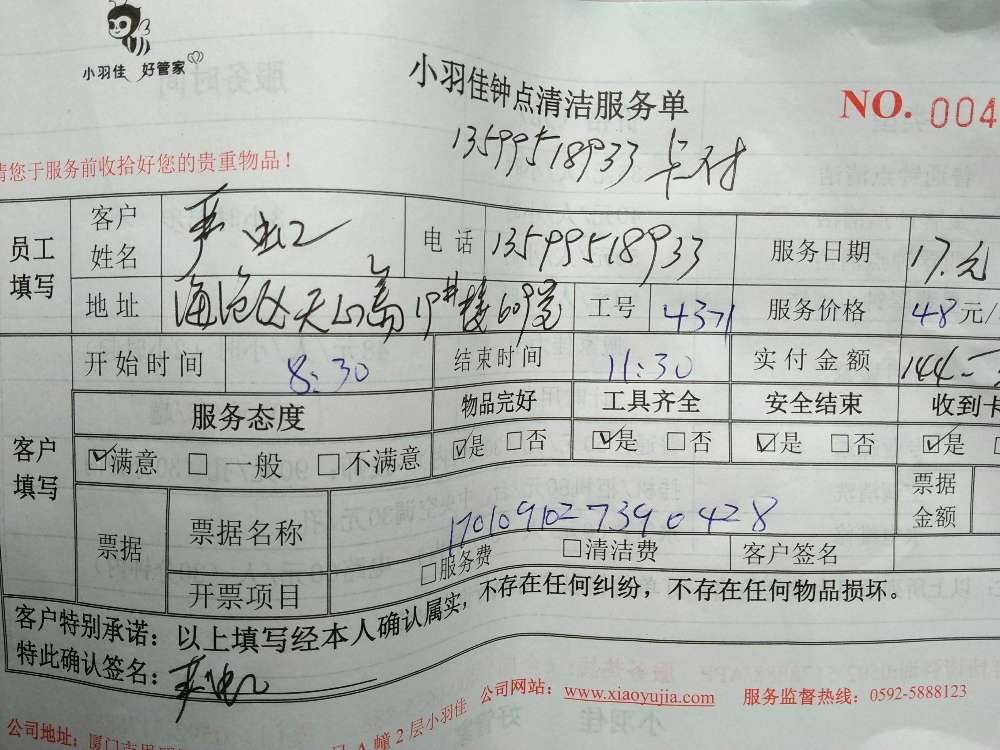 小羽佳 好管家
小羽佳钟点清洁服务单
NO. 004
13599518933 卡付
请您于服务前收拾好您的贵重物品！
员工填写 客户姓名 电话 13599518933 服务日期 17.元
地址 海沧区天山 19#楼609室 工号 4371 服务价格 48元/
客户填写 开始时间 8:30 结束时间 11:30 实付金额 144
服务态度 物品完好 工具齐全 安全结束 收到卡
☑满意 □一般 □不满意 ☑是 □否 ☑是 □否 ☑是 □否 ☑是
票据 票据名称 1701091027390428 票据金额
开票项目 □服务费 □清洁费 客户签名
客户特别承诺：以上填写经本人确认属实，不存在任何纠纷，不存在任何物品损坏。
特此确认签名：
公司地址：厦门市 A幢2层小羽佳 公司网站：www.xiaoyujia.com 服务监督热线：0592-5888123